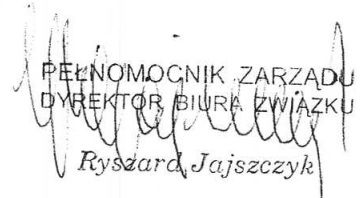 PEŁNOMOCNIK ZARZĄDU
DYREKTOR BIURA ZWIĄZKU
Ryszard Jajszczyk